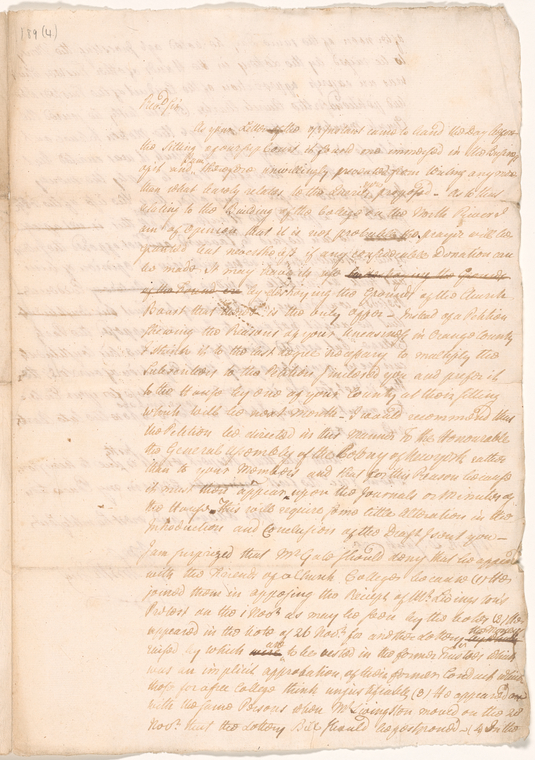 189 (4)
Revd Sir
As your Letter of the came to hand the Day before
the Sitting of our Sup Court it found me immersed in the Business
of it and I have been unwillingly prevented from writing any more
than what barely relates to the proposed – As to that
relating to the Building of the College on the North River I
am of Opinion that it is not probable the prayer will be
granted but nevertheless if any considerable Donation can
be made it may
destroying the Grounds of the Church
Board that theirs is the only offer – Instead of a Petition
shewing the Reasons of your Uneasiness in Orange County
I think it to the last degree necessary to multiply the
Subscribers to the Petition I inclosed you and prefer it
to the House by one of your County at their sitting
which will be next Month – I would recommend that
the Petition be directed in this manner To the Honourable
the General Assembly of the Colony of New York rather
than to your Members and that for this Reason because
it must appear upon the Journals or Minutes of
the House. This will require some little Alteration in the
Introduction and Conclusion of the Draft I sent you –
I am surprized that Mr Gale should deny that he appeared
with the Friends of a Church College because (1) He
joined them in opposing the Receipt of Mr Livingston's
Protest on the 1 Novr as may be seen by the Votes (2) He
appeared in the Vote of 26 Novr for another Lottery the Moneys
raised by which were to be vested in the former Trustees which
was an implicit approbation of their former Conduct which
those for a free College think unjustifiable (3) He appeared
with the same Persons when Mr Livingston moved on the 28
Novr that the Lottery Bill should be postponed – (4 In the